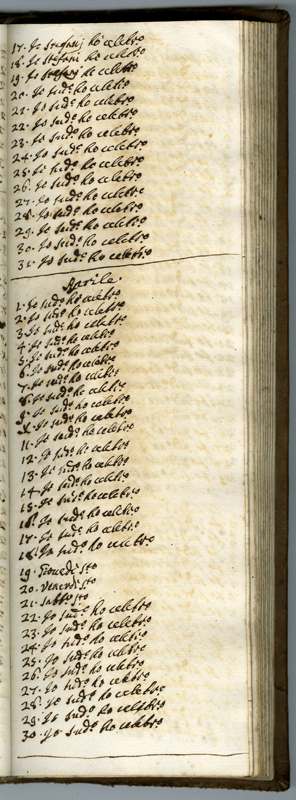 17. Io Stefanij ho celebro
18. Io Stefani ho celebro
19. Io Stefani ho celebro
20. Io sud.o ho celebro
21. Io sud.o ho celebro
22. Io sud.o ho celebro
23. Io sud.o ho celebro
24. Io sud.o ho celebro
25. Io sud.o ho celebro
26. Io sud.o ho celebro
27. Io sud.o ho celebro
28. Io sud.o ho celebro
29. Io sud.o ho celebro
30. Io sud.o ho celebro
31. Io sud.o ho celebro
Aprile.
1. Io sud.o ho celebro
2. Io sud.o ho celebro
3. Io sud.o ho celebro
4. Io sud.o ho celebro
5. Io sud.o ho celebro
6. Io sud.o ho celebro
7. Io sud.o ho celebro
8. Io sud.o ho celebro
9. Io sud.o ho celebro
10. Io sud.o ho celebro
11. Io sud.o ho celebro
12. Io sud.o ho celebro
13. Io sud.o ho celebro
14. Io sud.o ho celebro
15. Io sud.o ho celebro
16. Io sud.o ho celebro
17. Io sud.o ho celebro
18. Io sud.o ho celebro
19. Giovedì S.to
20. Venerdì S.to
21. Sabbo S.to
22. Io sud.o ho celebro
23. Io sud.o ho celebro
24. Io sud.o ho celebro
25. Io sud.o ho celebro
26. Io sud.o ho celebro
27. Io sud.o ho celebro
28. Io sud.o ho celebro
29. Io sud.o ho celebro
30. Io sud.o ho celebro